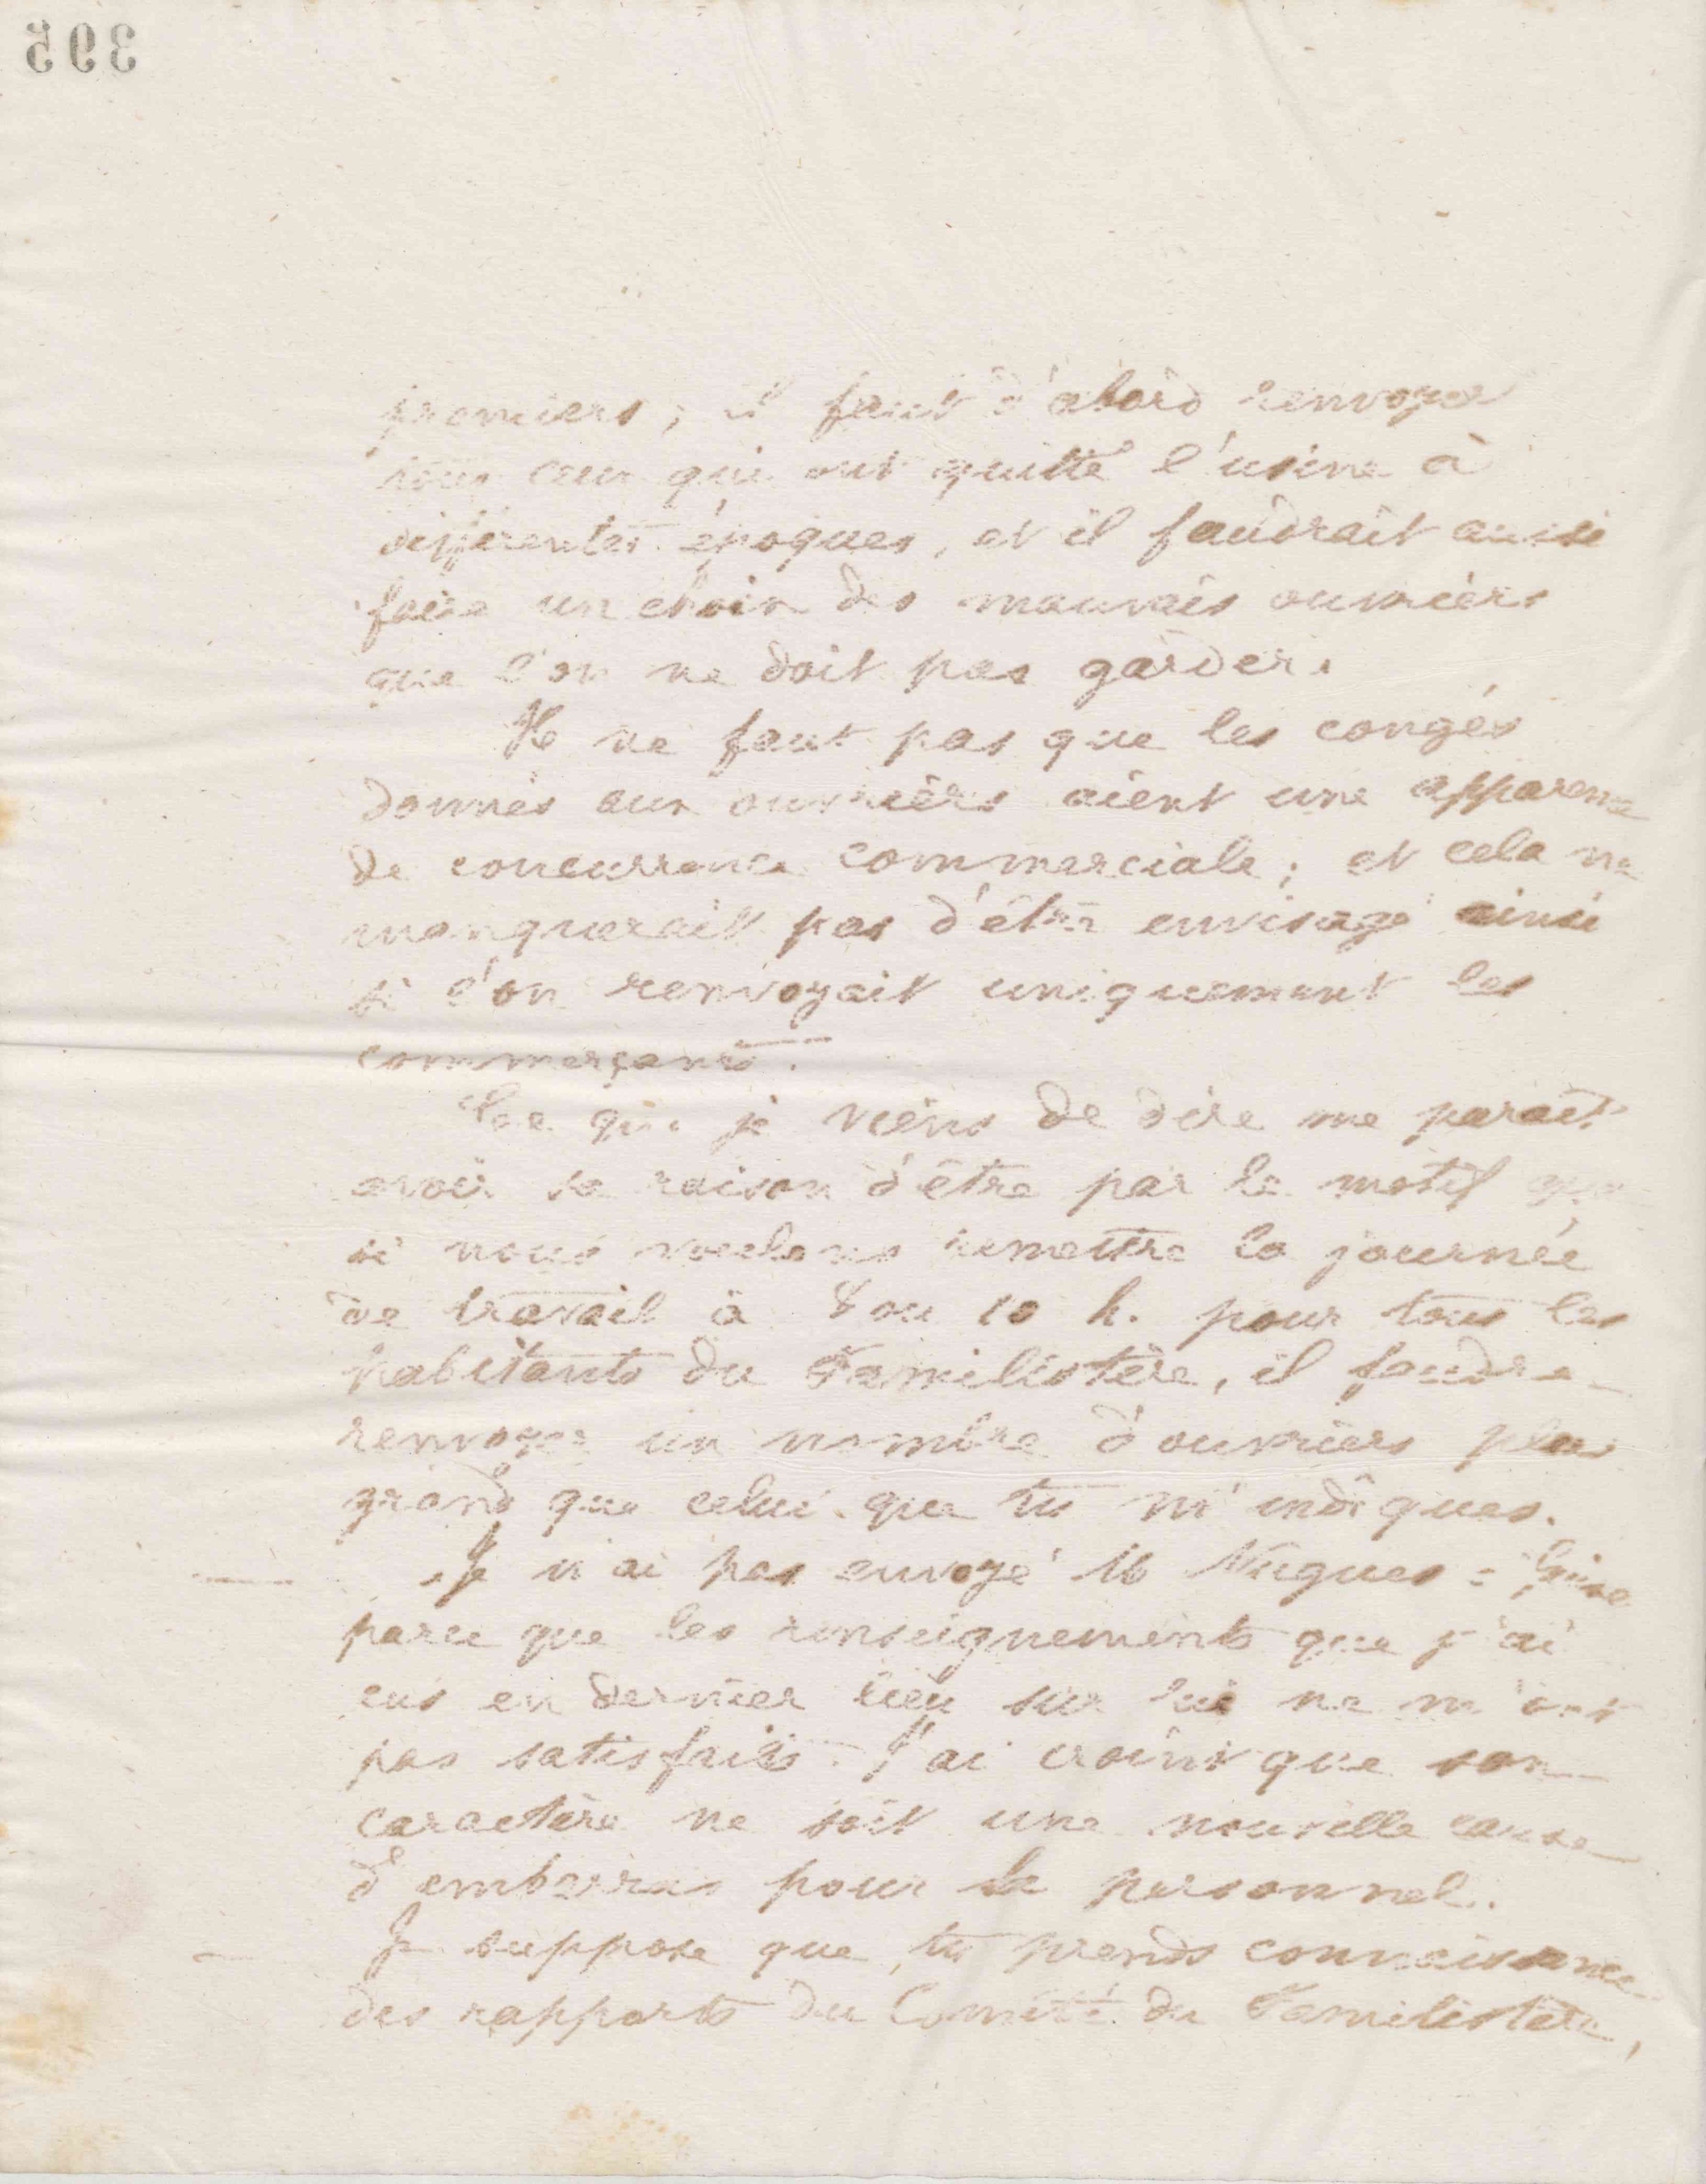 395
premiers ; il faut d'abord renvoyer
tous ceux qui ont quitté l'usine à
différentes époques, et il faudrait aussi
faire un choix des mauvais ouvriers
que l'on ne doit pas garder.
Il ne faut pas que les congés
donnés aux ouvriers aient une apparence
de concurrence commerciale ; et cela ne
manquerait pas d'être envisagé ainsi
si l'on renvoyait uniquement les
commerçants.
Ce que je viens de dire me paraît
avoir sa raison d'être par le motif que
si nous voulons remettre la journée
de travail à 8 ou 10 h. pour tous les
habitants du Familistère, il faudra
renvoyer un nombre d'ouvriers plus
grand que celui que tu m'indiques.
Je n'ai pas envoyé M Nugues à Guise
parce que les renseignements que j'ai
eus en dernier lieu sur lui ne m'ont
pas satisfaits. J'ai craint que son
caractère ne soit une nouvelle cause
d'embarras pour le personnel.
Je suppose que tu prends connaissance
des rapports du Comité du Familistère,